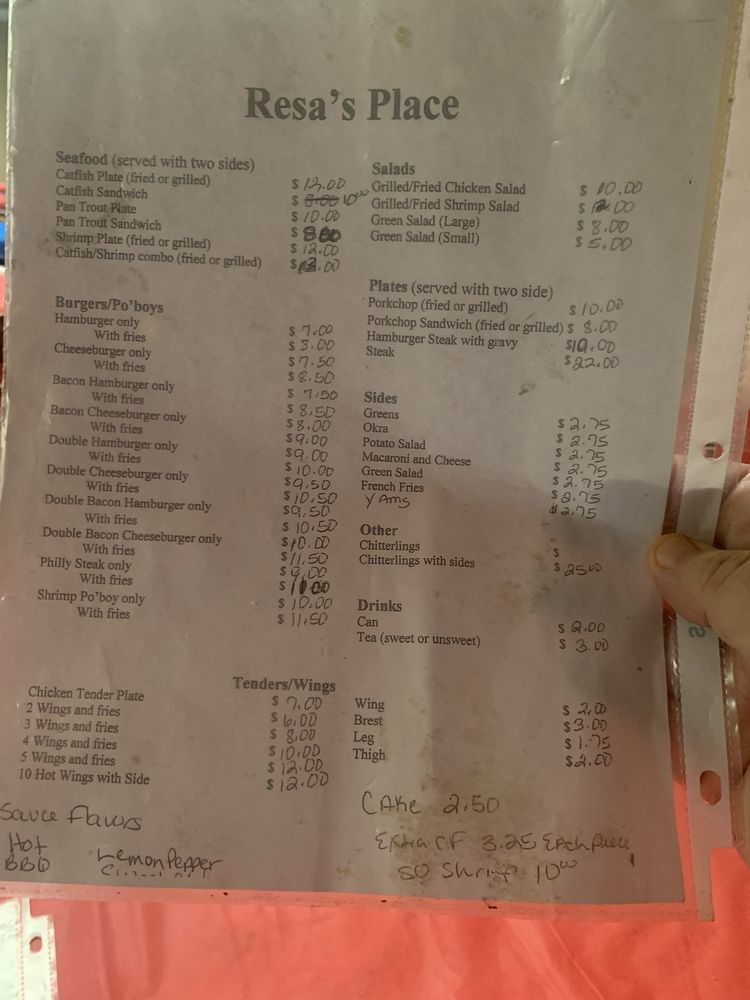 Resa's Place
Seafood (served with two sides)
Catfish Plate (fried or grilled) $ 12.00
Catfish Sandwich $ 8.00 10⁰⁰
Pan Trout Plate $ 10.00
Pan Trout Sandwich $ 8.00
Shrimp Plate (fried or grilled) $ 12.00
Catfish/Shrimp combo (fried or grilled) $ .00
Burgers/Po'boys
Hamburger only $ 7.00
With fries $ 8.00
Cheeseburger only $ 7.50
With fries $ 8.50
Bacon Hamburger only $ 7.50
With fries $ 8.50
Bacon Cheeseburger only $ 8.00
With fries $ 9.00
Double Hamburger only $ 9.00
With fries $ 10.00
Double Cheeseburger only $ 9.50
With fries $ 10.50
Double Bacon Hamburger only $ 9.50
With fries $ 10.50
Double Bacon Cheeseburger only $ 10.00
With fries $ 11.50
Philly Steak only $ 9.00
With fries $
Shrimp Po'boy only $ 10.00
With fries $ 11.50
Tenders/Wings
Chicken Tender Plate $ 7.00
2 Wings and fries $ 6.00
3 Wings and fries $ 8.00
4 Wings and fries $ 10.00
5 Wings and fries $ 12.00
10 Hot Wings with Side $ 12.00
Sauce Flavors
Hot
BBQ
Lemon Pepper
Salads
Grilled/Fried Chicken Salad $ 10.00
Grilled/Fried Shrimp Salad $ 12.00
Green Salad (Large) $ 8.00
Green Salad (Small) $ 5.00
Plates (served with two side)
Porkchop (fried or grilled) $ 10.00
Porkchop Sandwich (fried or grilled) $ 8.00
Hamburger Steak with gravy $ 10.00
Steak $ 22.00
Sides
Greens $ 2.75
Okra $ 2.75
Potato Salad $ 2.75
Macaroni and Cheese $ 2.75
Green Salad $ 2.75
French Fries $ 2.75
Yams $ 2.75
Other
Chitterlings $
Chitterlings with sides $ 25⁰⁰
Drinks
Can $ 2.00
Tea (sweet or unsweet) $ 3.00
Wing $ 2.00
Brest $ 3.00
Leg $ 1.75
Thigh $ 2.00
CAKe 2.50
Extra CF 3.25 EAch Piece
SO Shrimp 10⁰⁰